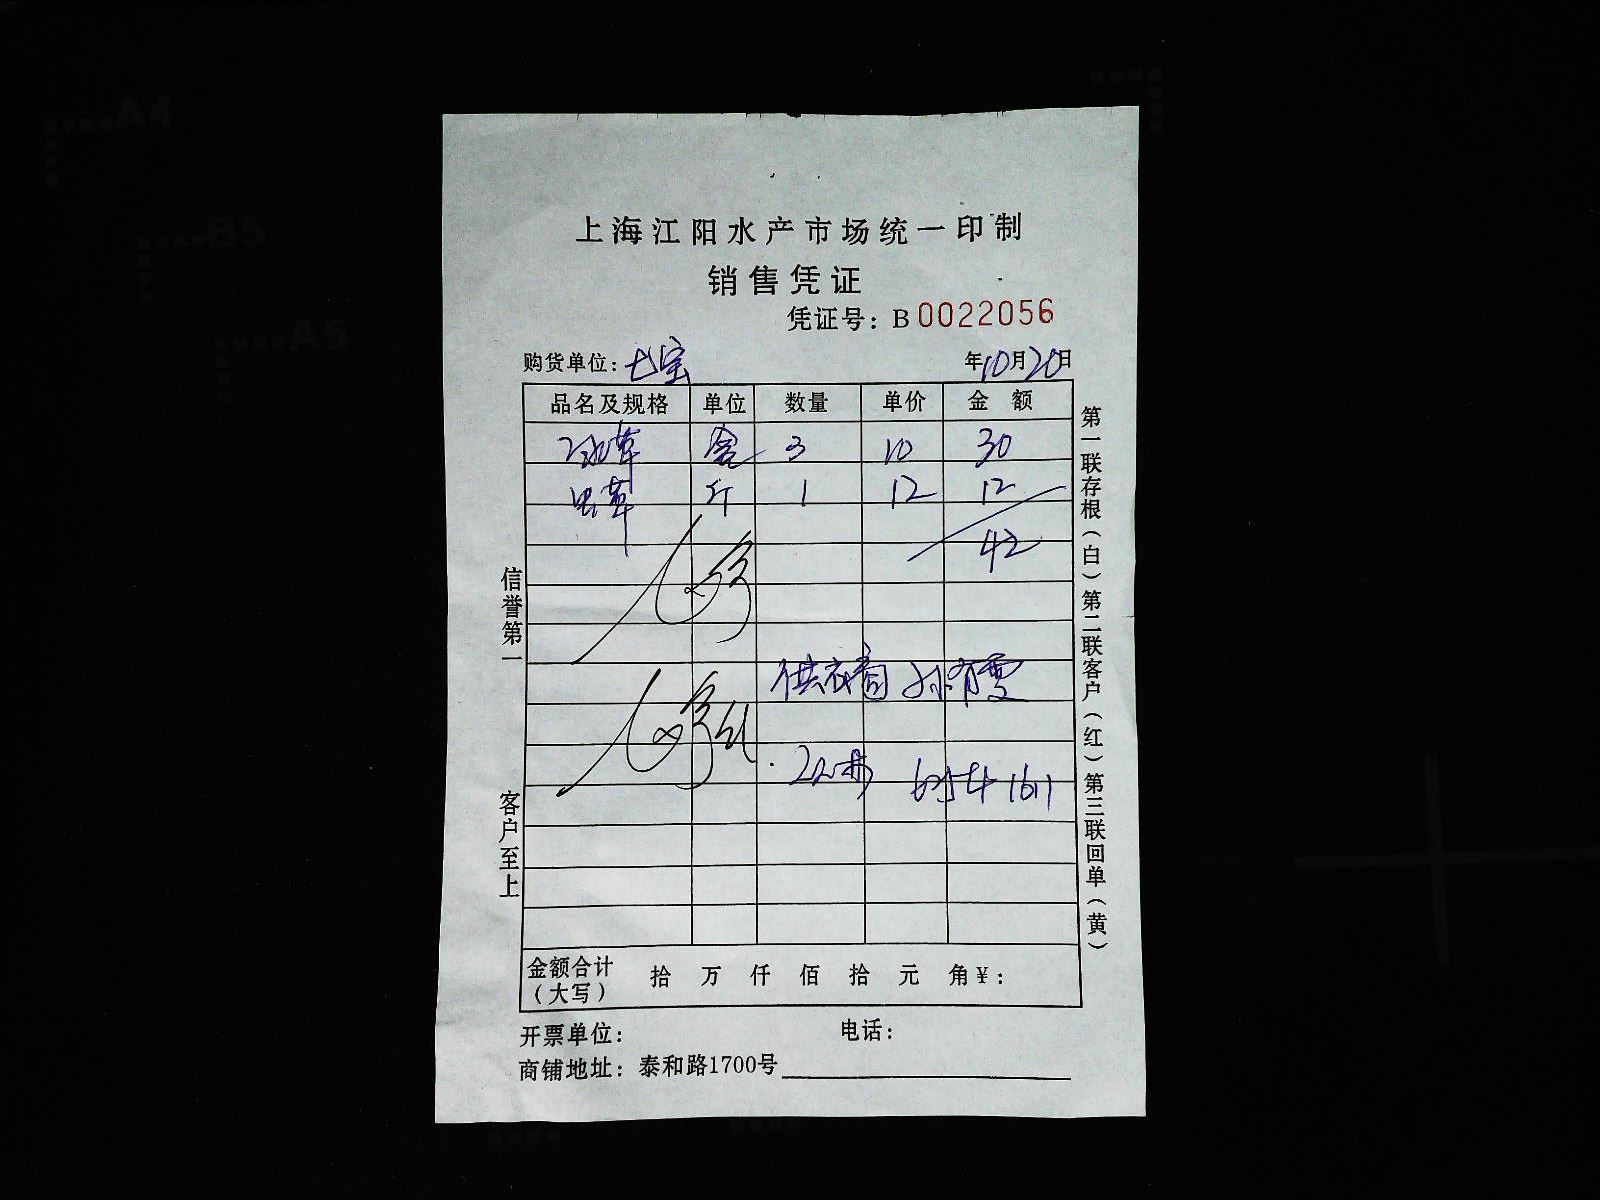 上海江阳水产市场统一印制
销售凭证
凭证号：B 0022056
购货单位：七宝 年10月20日
品名及规格 单位 数量 单价 金额
冰草 盒 3 10 30
虫草 斤 1 12 12
42
供应商 孙有雪
金额合计（大写） 拾 万 仟 佰 拾 元 角 ¥：
开票单位： 电话：
商铺地址：泰和路1700号
信誉第一
客户至上
第一联存根（白）第二联客户（红）第三联回单（黄）
A4
B5
A5